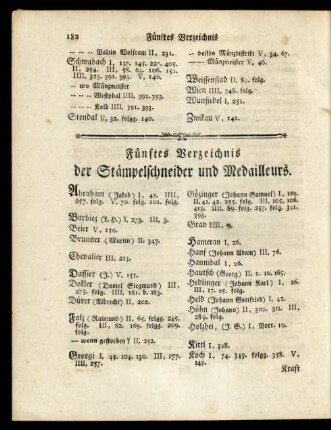 182 Fünftes Verzeichnis
-- -- -- Valtin Wolfrau II, 231.
Schwabach I, 137. 145. 227. 405.
II, 254. III, 58. 63. 106. 151.
IIII, 323. 391. 393. V, 140.
-- wo Münzmeister
-- -- -- Westphal IIII, 391. 393.
-- -- -- Kolb IIII, 391. 393.
Stendal V, 32. folgg. 140.
-- dessen Münzdistrikt V, 34. 67.
-- -- Münzmeister V, 46.
Weissenstad II, 83. folg.
Wien IIII, 248. folg.
Wunsiedel I, 251.
Zwikau V, 141.
Fünftes Verzeichnis
der Stämpelschneider und Medailleurs.
Abraham (Jakob) I, 45. IIII,
257. folg. V, 70. folg. 101. folg.
Barbiez (L. H.) I, 273. III, 3.
Beier V, 150.
Brunner (Martin) II, 347.
Chevalier III, 223.
Dassier (J.) V, 151.
Dokler (Daniel Siegmund) III,
273. folg. IIII, 181. b. 183.
Dürer (Albrecht) II, 202.
Falz (Raimund) II, 65. folgg. 245.
folg. III, 82. 169. folgg. 209.
folg.
-- wenn gestorben? II, 252.
Georgi I, 45. 104. 130. III, 177.
IIII, 257.
Gözinger (Johann Samuel) I, 169.
II, 41. 42. 255. folg. III, 105. 106.
413. IIII, 89. folg. 257. folg. 391.
393.
Grav IIII, 9.
Hameran I, 26.
Hanf (Johann Adam) III, 76.
Hannibal I, 26.
Hautsch (Georg) II, 5. 10. 165.
Hedlinger (Johann Karl) I, 26.
III, 17. 25. folg.
Held (Johann Gottfried) I, 42.
Höhn (Johann) II, 301. III, III,
289. folg.
Holzhei, (J. G.) I, Vorr. 19.
Kittl I, 398.
Koch I, 74. 349. folgg. 358. V,
149.
Kraft